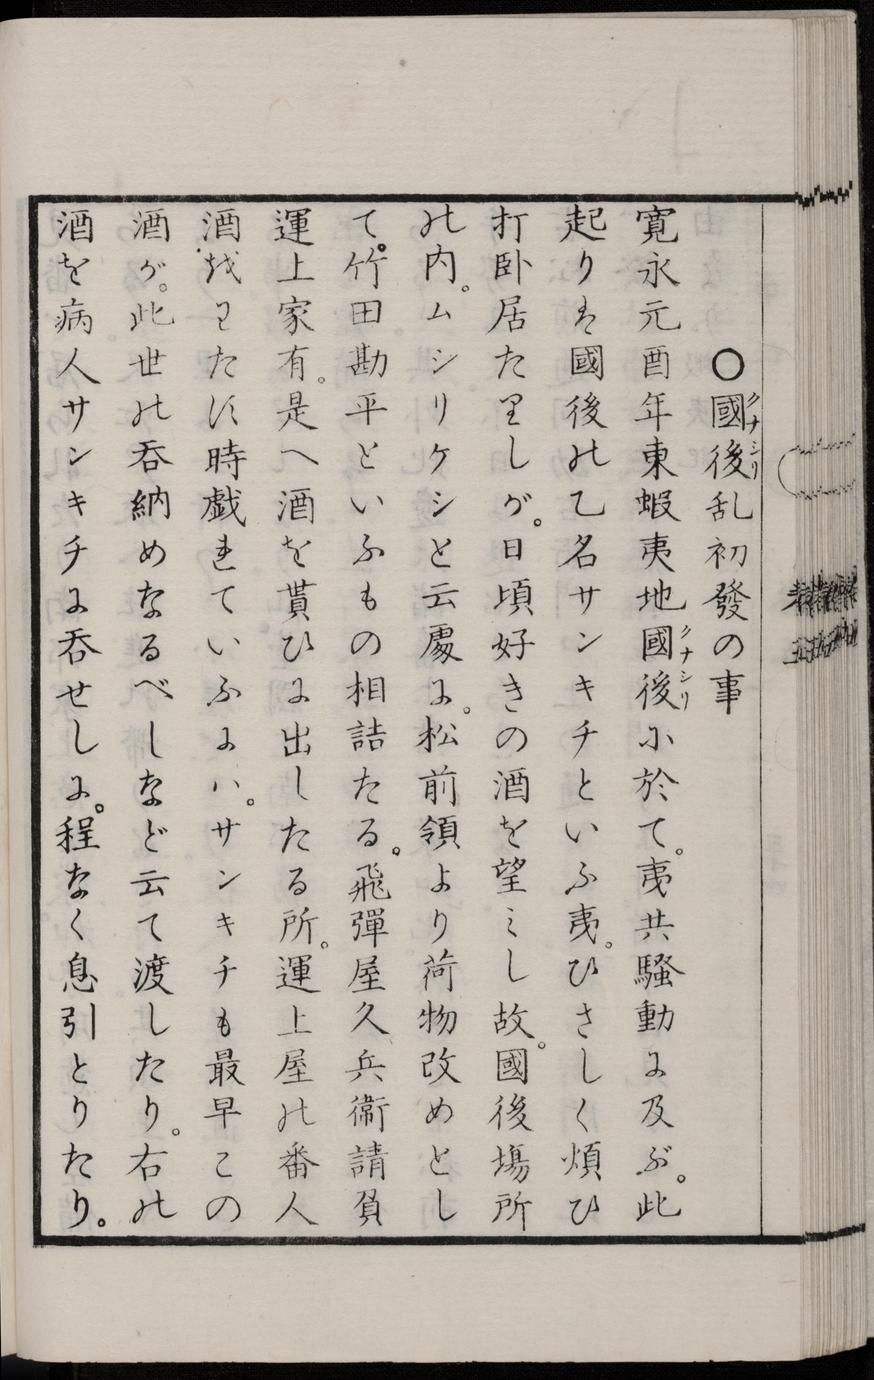 〇國後乱初發の事
クナシリ
寛永元酉年東蝦夷地國後ニ於て。夷共騒動に及ぶ。此
クナシリ
起りは國後の乙名サンキチといふ夷。ひさしく煩ひ
打卧居たりしが。日頃好きの酒を望ミし故。國後塲所
の内。ムシリケシと云處に。松前領より荷物改めとし
て。竹田勘平といふもの相詰たる。飛彈屋久兵衞請負
運上家有。是へ酒を貰ひに出したる所。運上屋の番人
酒をわたす時戯れていふにハ。サンキチも最早この
酒が。此世の呑納めなるべしなど云て渡したり。右の
酒を病人サンキチに呑せしに。程なく息引とりたり。